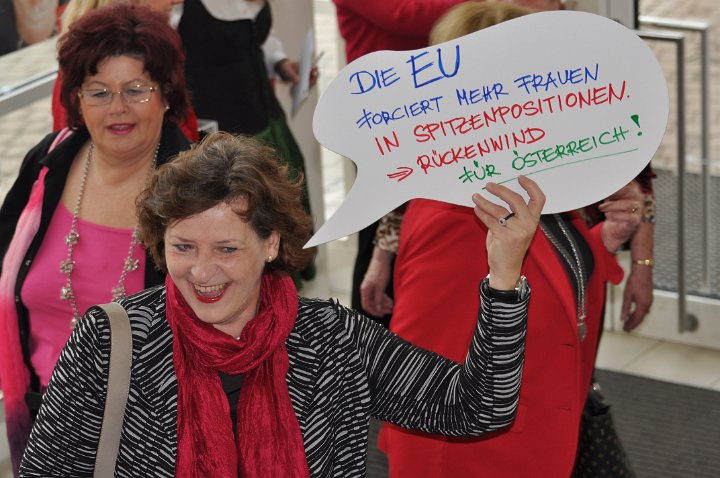 DIE EU
FORCIERT MEHR FRAUEN
IN SPITZENPOSITIONEN.
⇒ RÜCKENWIND
FÜR ÖSTERREICH!